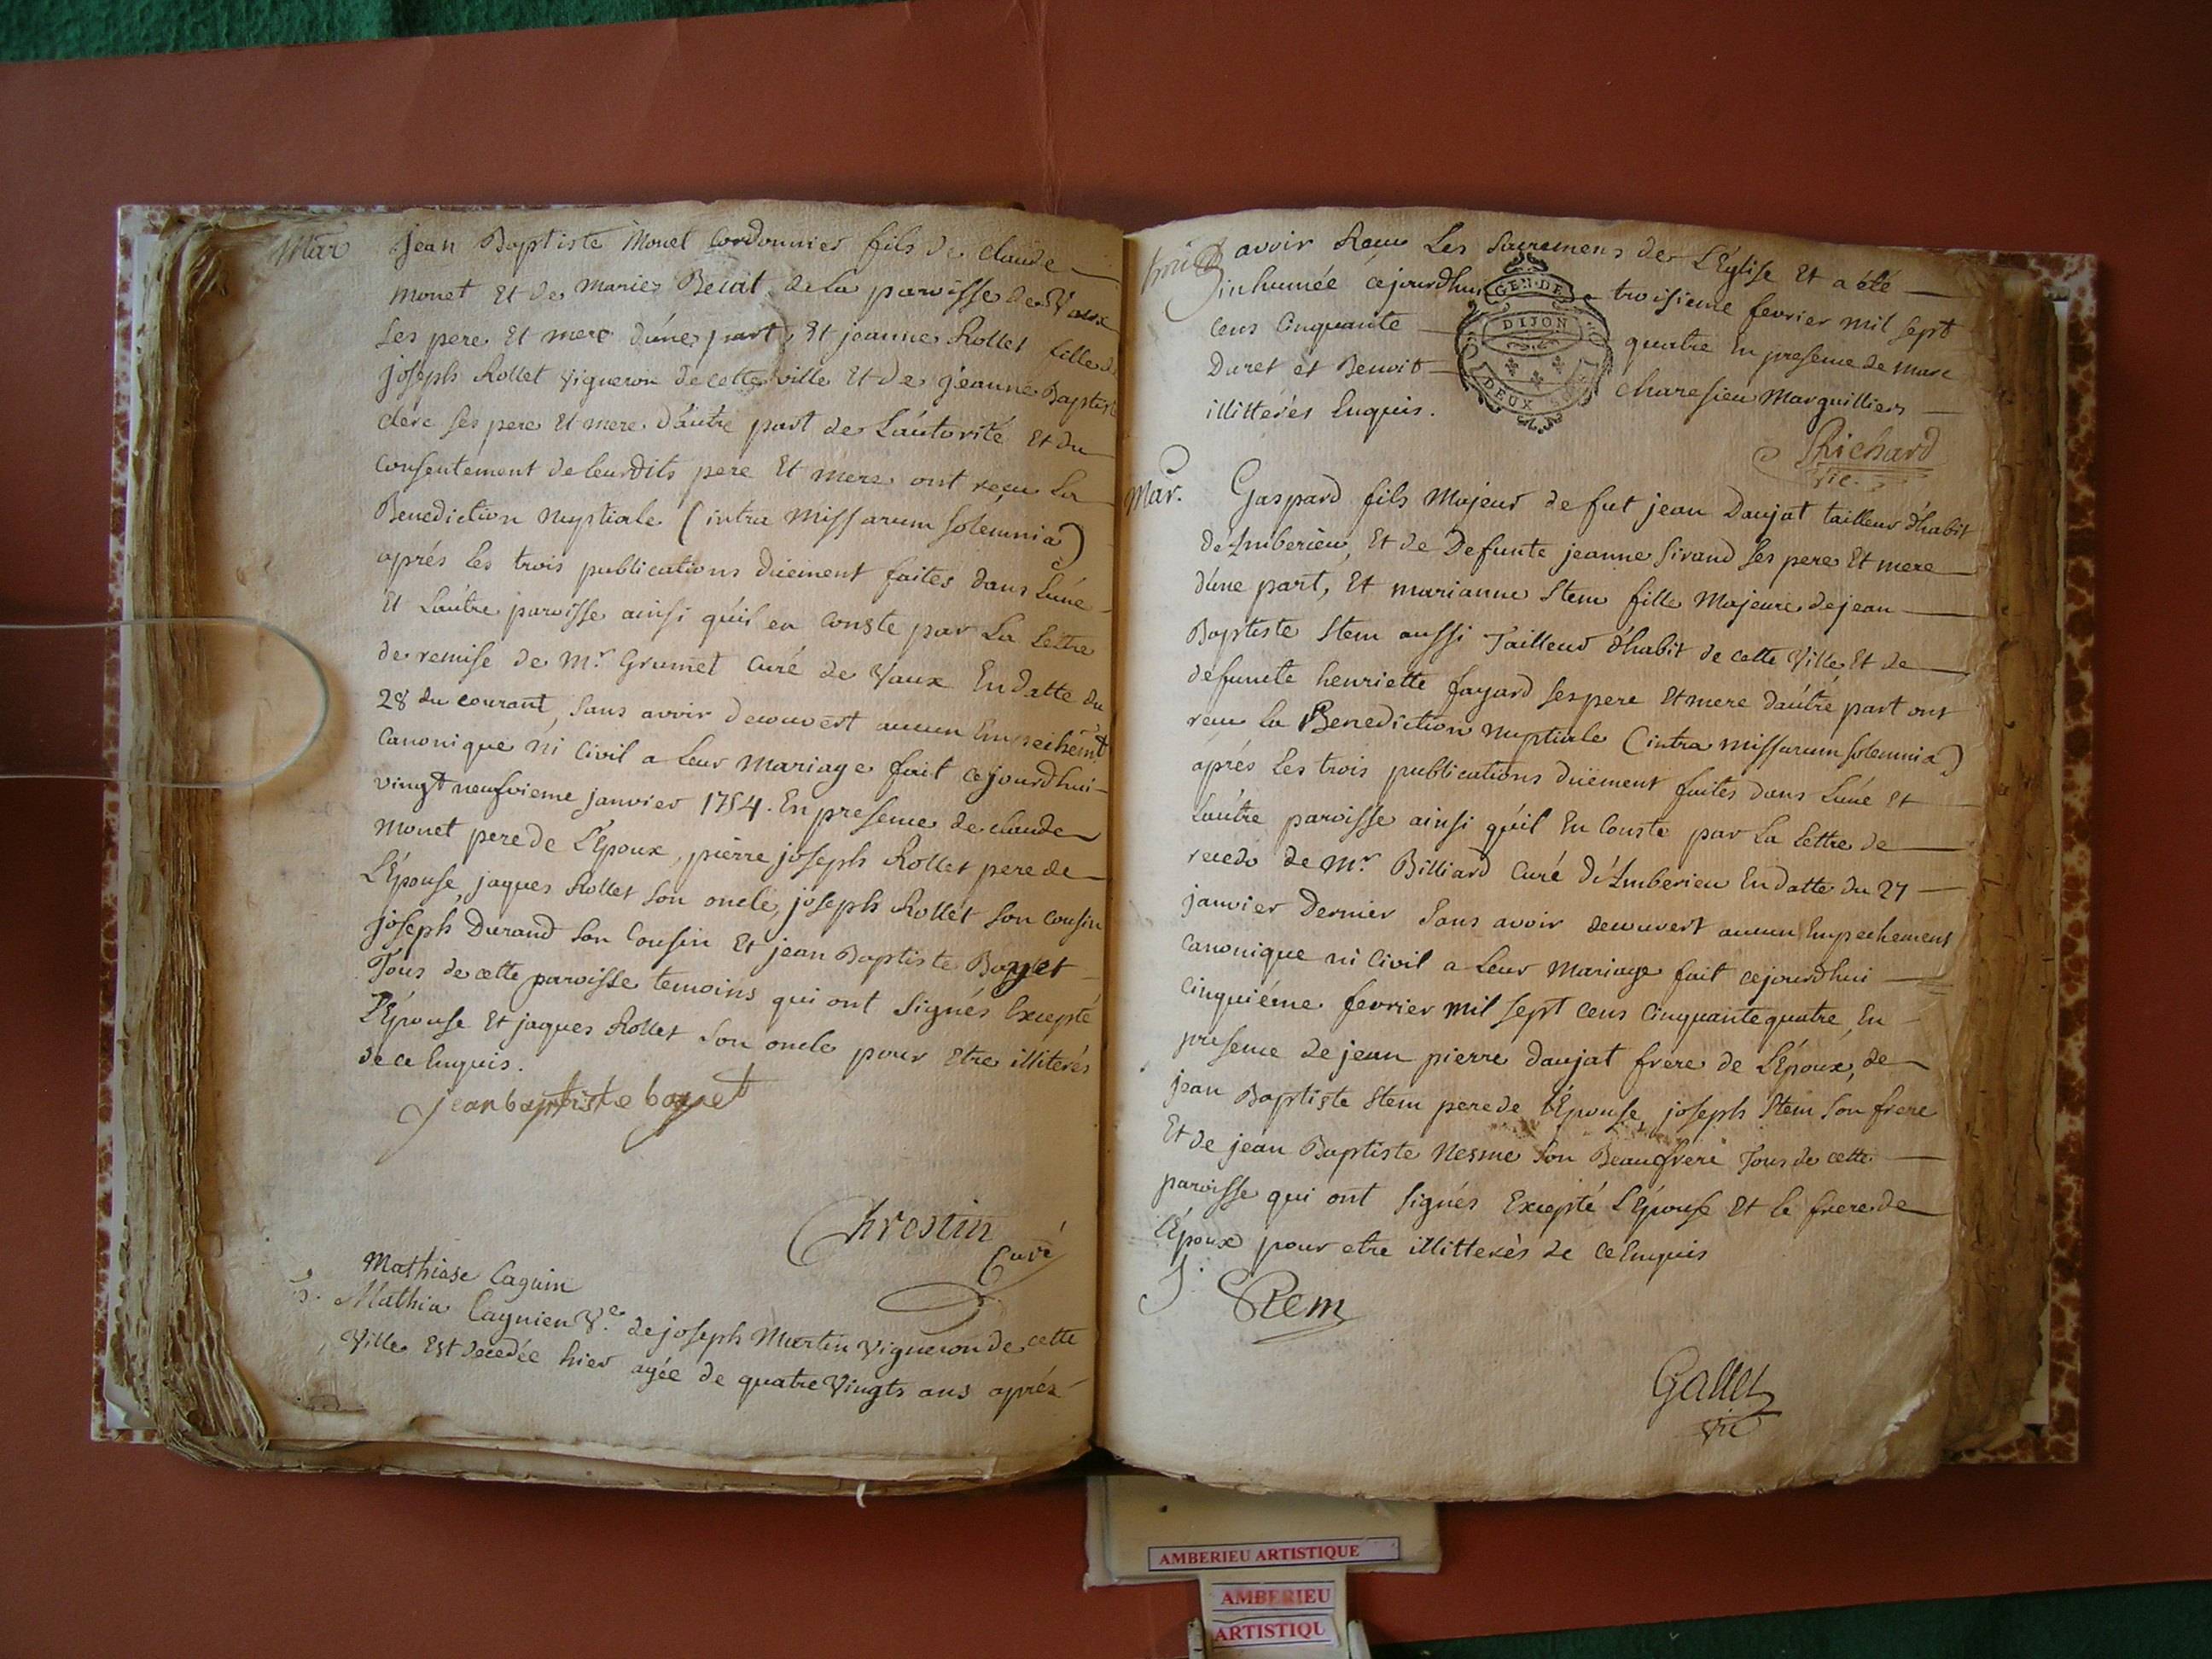 Mar
Jean Baptiste Monet Cordonnier fils de claude
monet Et de marie Benit de la paroisse de Vaux
Ses pere Et mere d'une part, Et jeanne Rollet fille de
joseph Rollet Vigneron de cette ville Et de jeanne Baptiste
clere Ses pere Et mere d'autre part de L'autorité Et du
Consentement de leurdits pere Et mere ont reçu La
Benediction nuptiale (intra missarum solemnia)
aprés les trois publications düement faites dans L'une
Et L'autre paroisse ainsi qu'il en Conste par La Lettre
de remise de Mr. Grumet Curé de Vaux En datte du
28 du courant, Sans avoir decouvert aucun Empechemt
Canonique ni Civil a Leur Mariage fait cejourdhui
vingt neufvieme janvier 1754. En presence de claude
monet pere de L'Epoux, pierre joseph Rollet pere de
L'Epouse, jaques Rollet Son oncle, joseph Rollet Son Cousin
joseph Durand Son Cousin Et jean Baptiste Bozet
Tous de cette paroisse temoins qui ont Signés Excepté
L'Epouse Et jaques Rollet Son oncle pour Etre illiterés
de ce Enquis.
jean baptiste bozet
Chrestin
Curé
Mathiase Caguin
S. Mathia Cagnien Ve. de joseph Martin Vigneron de cette
Ville Est decedée hier agée de quatre Vingts ans aprés
avoir Reçu Les Sacremens de L'Eglise Et a été
inhumée cejourdhui troisieme fevrier mil Sept
GEN DE
DIJON
DEUX
Cens Cinquante quatre En presence de marc
Duret et Benoit Charesieu Marguilliers
illitterés Enquis.
Richard
Vic.
Mar.
Gaspard fils Majeur de fut jean Daujat tailleur d'habit
de Imberieu, Et de Defunte jeanne Sirand Ses pere Et mere
d'une part, Et marianne Stem fille Majeure de jean
Baptiste Stem aussi Tailleur d'habit de cette Ville, Et de
defunte henriette fayard Ses pere Et mere d'autre part ont
recu la Benediction nuptiale (intra missarum solemnia)
aprés Les trois publications düement faites dans L'une Et
L'autre paroisse ainsi qu'il En Conste par La Lettre de
recedo de Mr. Billiard Curé d'Imberieu En datte du 27
janvier Dernier Sans avoir decouvert aucun Empechement
Canonique ni Civil a Leur Mariage fait cejourdhui
Cinquiéme fevrier mil Sept Cens Cinquante quatre, En
presence de jean pierre Daujat frere de L'Epoux, de
jean Baptiste Stem pere de L'Epouse, joseph Stem Son frere
Et de jean Baptiste Nesme Son Beaufrere Tous de cette
paroisse qui ont Signés Excepté L'Epouse Et le frere de
L'Epoux pour etre illitterés de ce Enquis
J. Stem
Gallet
Vic
AMBERIEU ARTISTIQUE
AMBERIEU
ARTISTIQU